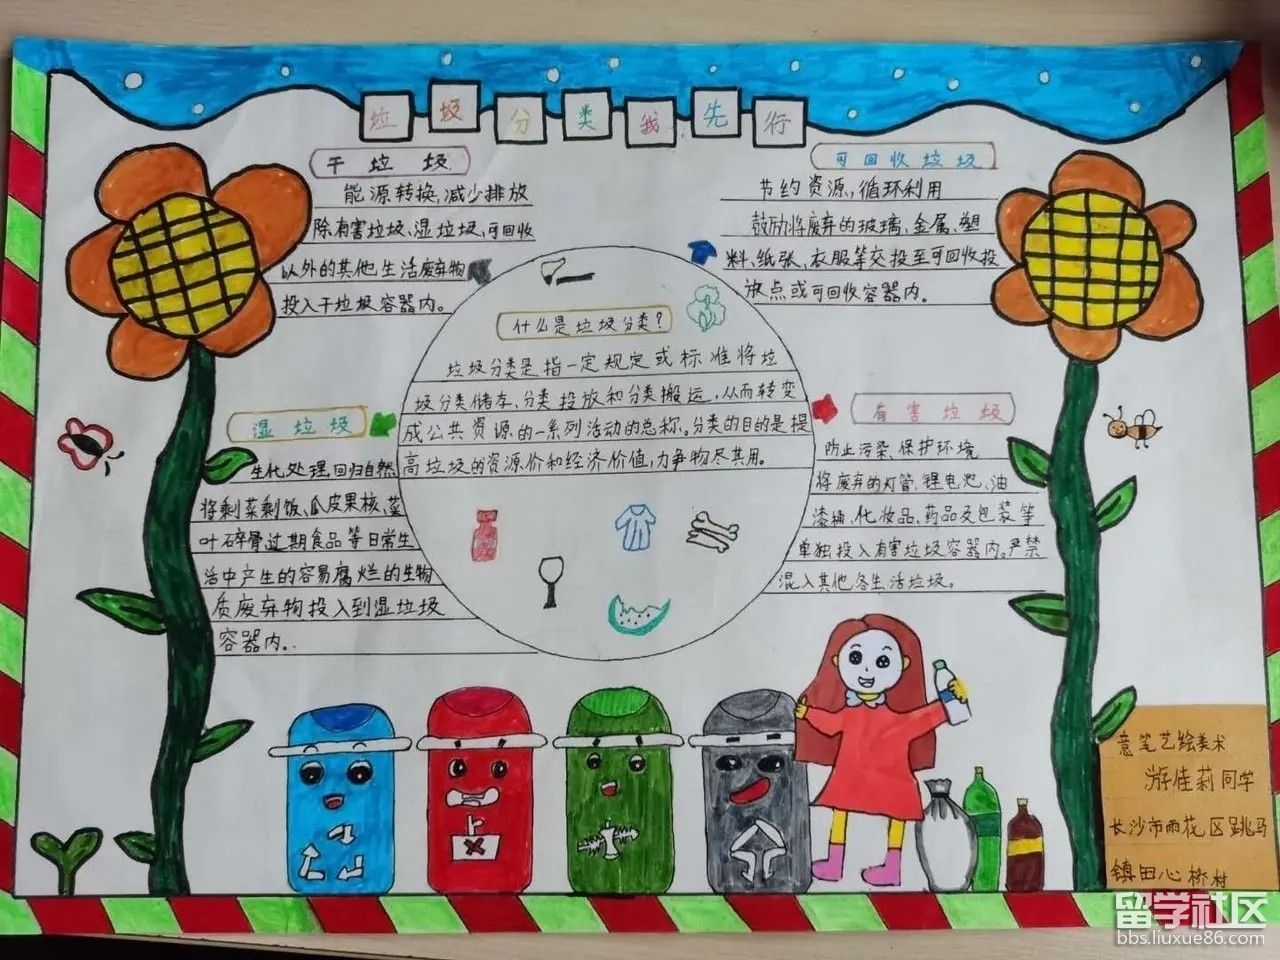 垃圾分类我先行
干垃圾
能源转换,减少排放
除有害垃圾、湿垃圾、可回收
以外的其他生活废弃物
投入干垃圾容器内。
可回收垃圾
节约资源,循环利用
鼓励将废弃的玻璃、金属、塑
料、纸张、衣服等交投至可回收投
放点或可回收容器内。
什么是垃圾分类?
垃圾分类是指一定规定或标准将垃
圾分类储存、分类投放和分类搬运,从而转变
成公共资源的一系列活动的总称。分类的目的是提
高垃圾的资源价和经济价值,力争物尽其用。
湿垃圾
生化处理,回归自然
将剩菜剩饭、瓜皮果核、菜
叶碎骨、过期食品等日常生
活中产生的容易腐烂的生物
质废弃物投入到湿垃圾
容器内。
有害垃圾
防止污染、保护环境
将废弃的灯管、锂电池、油
漆桶、化妆品、药品及包装等
单独投入有害垃圾容器内。严禁
混入其他各生活垃圾。
意笔艺绘美术
游佳莉同学
长沙市雨花区跳马
镇田心桥村
留学社区
bbs.liuxue86.com